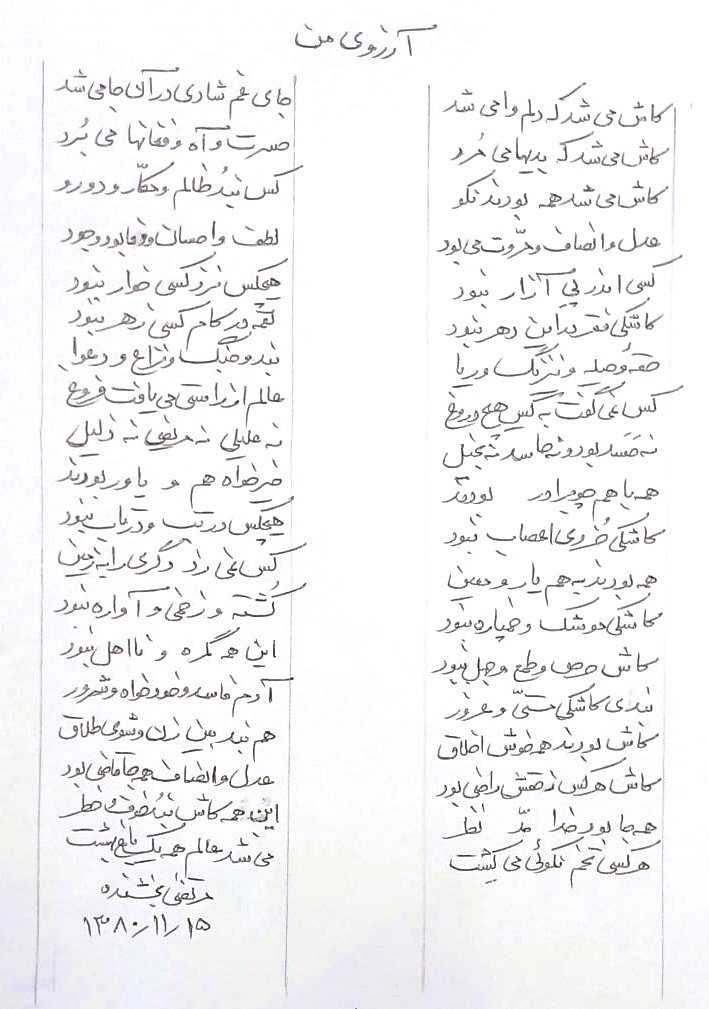 آرزوی من
کاش می شد که دلم وا می شد
جای غم شادی در آن جا می شد
کاش می شد که بدیها می مُرد
حسرت و آه و فغانها می بُرد
کاش می شد همه بودند نکو
کس نبُد ظالم و مکّار و دورو
عدل و انصاف و مروّت می بود
لطف و احسان و وفا بود وجود
کسی اندر پی آزار نبود
هیچکس نزد کسی خوار نبود
کاشکی فقر در این دهر نبود
لقمه در کام کسی زهر نبود
حقه و حیله و نیرنگ و ریا
نبد و جنگ و نزاع و دعوا
کس نمی گفت به کس هیچ دروغ
عالم از راستی می یافت فروغ
نه حَسَد بود و نه حاسد نه بخیل
نه علیلی نه مریضی نه ذلیل
همه با هم چو برادر بودند
خیرخواه هم و یاور بودند
کاشکی خُردی اعصاب نبود
هیچکس در تب و در تاب نبود
همه بودند به هم یار و معین
کس نمی زد دگری را به زمین
کاشکی موشک و خمپاره نبود
کُشته و زخمی و آواره نبود
کاش حرص و طمع و جهل نبود
این همه گمره و نااهل نبود
نبدی کاشکی مستیّ و غرور
آدم فاسد و خودخواه و شرور
کاش بودند همه خوش اخلاق
هم نبد بین زن و شوی طلاق
کاش هر کس ز حقش راضی بود
عدل و انصاف همه جا قاضی بود
همه جا بود خدا مدّ نظر
این همه کاش نبُد خوف و خطر
هر کسی تخم نکوئی می کِشت
می شد عالم همه یک باغ بهشت
مرتضی بخشنده
۱۳۸۰/۱۱/۱۵